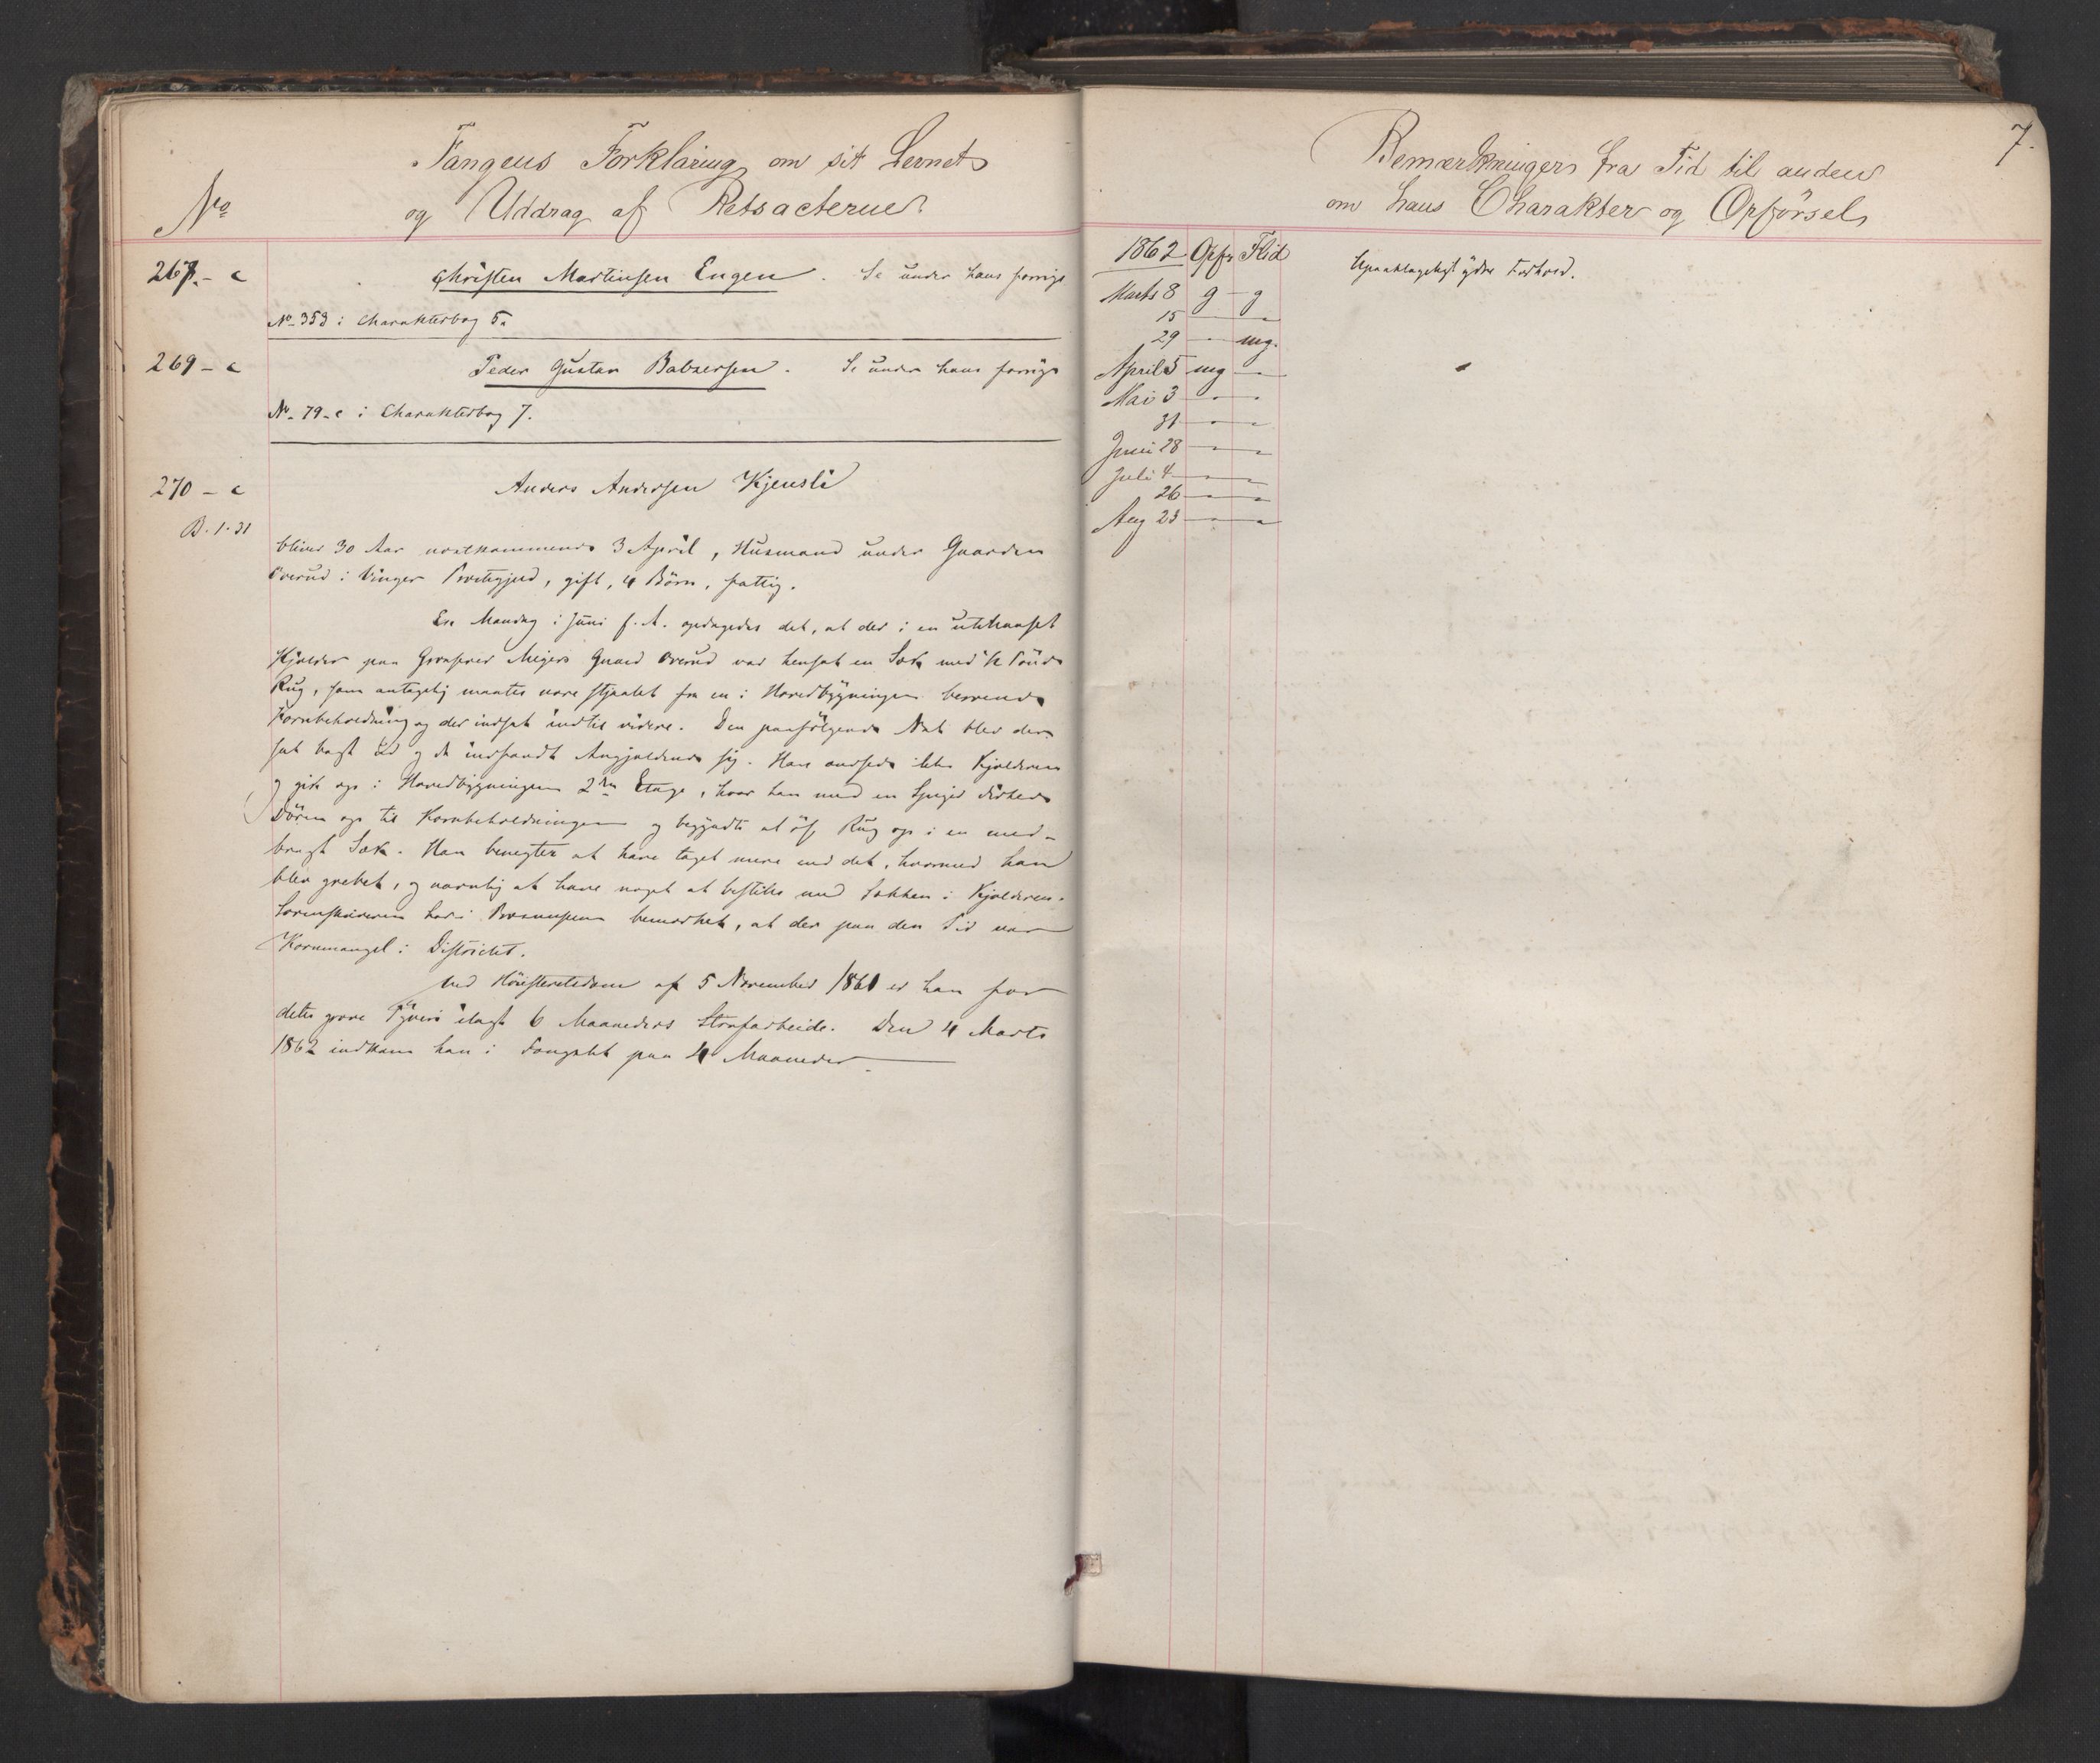 No
Fangens Forklaring om sit Levnet
og Uddrag af Retsacterne
267. - c
Christen Martinsen Engen. Se under hans forrige
No 353 i Charakterbog 5.
269 - c
Peder Gustav Balzersen. Se under hans forrige
No 79-c i Charakterbog 7.
270 - c
Anders Andersen Kjensli
B. 1. 31
bliver 30 Aar næstkommende 3 April, Husmand under Gaarden
Overud i Vinger Præstegjeld, gift, 4 Børn, fattig.
En Mandag i Juni f. A. opdagedes det, at der i en
Kjelder paa Meyers Gaard Overud var hensat en Sæk med 1/2 Tønde
Rug, som antagelig maatte være stjaalet fra en i Hovedbygningen værende
Kornbeholdning og der indsat indtil videre. Den paafølgende Nat blev der
sat Vagt ud og da indfandt Angjeldende sig. Han Kjelderen
og gik op i Hovedbygningens 2den Etage, hvor han med en Spiger dirkede
Døren op til Kornbeholdningen og begyndte at øse Rug op i en med-
bragt Sæk. Han benegter at have taget mere end det, hvormed han
blev grebet, og navnlig at have noget at bestille med Sækken i Kjelderen.
Sorenskriveren har i Præmisserne bemærket, at der paa den Tid var
Kornmangel i Districtet.
Ved Høiesteretsdom af 5 November 1861 er han for
dette grove Tyveri ilagt 6 Maaneders Strafarbeide. Den 4 Marts
1862 indkom han i Fængslet paa 4 Maaneder.
7.
Bemærkninger fra Tid til anden
om hans Charakter og Opførsel
1862 Opfr Flid
Upaaklageligt ydre Forhold.
Marts 8 g - g
15 - -
29 - mg.
April 5 mg -
Mai 3 - -
31 - -
Juni 28 - -
Juli 4 - -
26 - -
Aug 23 - -